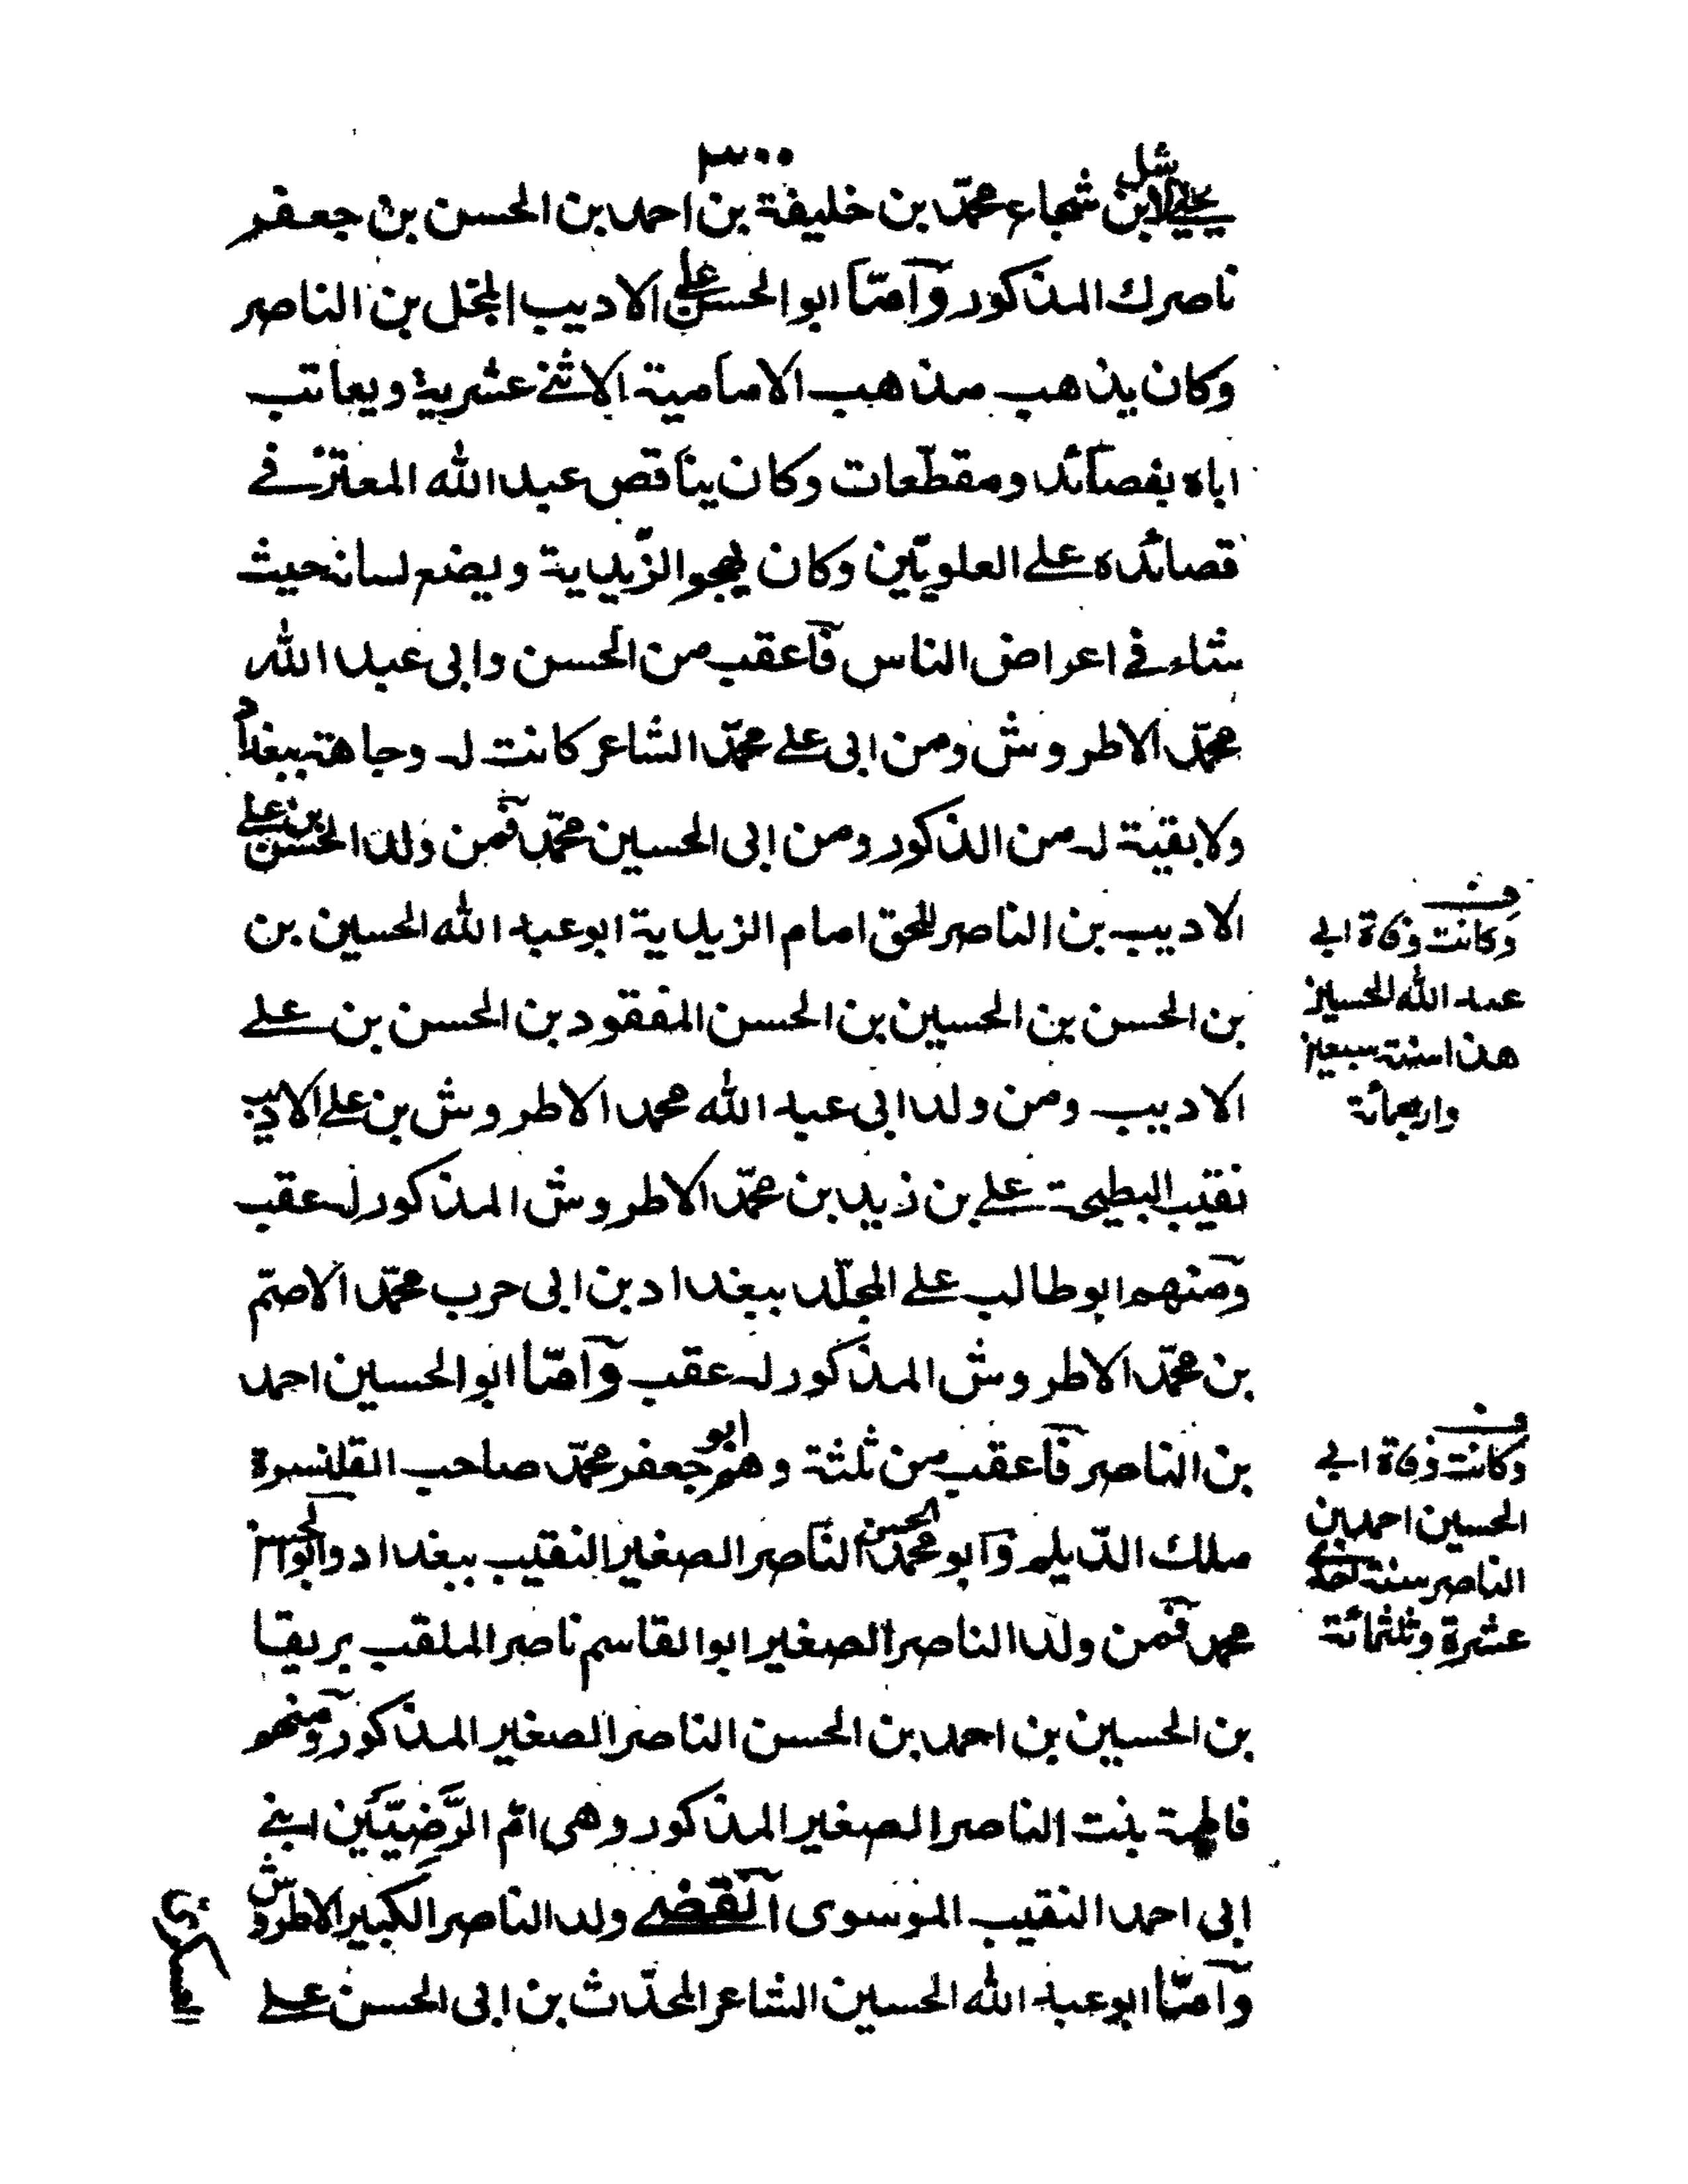 ٣٠٠
شل
بن شجاع محمّد بن خليفة بن احمد بن الحسن بن جعفر
ناصرك المذكور وآمّا ابو الحسن علي الاديب المجّل بن الناصر
وكان يذهب مذهب الامامية الاثنے عشرية ويعاتب
اباه بقصآئد ومقطّعات وكان يناقص عبد الله المعتز فے
قصائده علے العلويّين وكان يهجو الزّيدية ويضع لسانه حيث
شاء فے اعراض الناس فآعقب من الحسن وابى عبد الله
محمّد الاطروش ومن ابى علے محمّد الشاعر كانت له وجاهة ببغداد
ولا بقيّة له من الذكور ومن ابى الحسين محمّد فمن ولد الحسن بن علے
الاديب بن الناصر للحق امام الزيدية ابو عبد الله الحسين بن
بن الحسن بن الحسين بن الحسن المفقود بن الحسن بن علے
الاديب ومن ولد ابى عبد الله محمد الاطروش بن علے الاديب
نقيب البطيحة علے بن زيد بن محمّد الاطروش المذكور له عقب
وآمنهم ابو طالب علے المجلّد ببغداد بن ابى حرب محمّد الاصمّ
بن محمّد الاطروش المذكور له عقب وآمّا ابو الحسين احمد
بن الناصر فآعقب من ثلثة وهم ابو جعفر محمّد صاحب القلنسوة
ملك الدّيلم وآبو محمّد الحسن الناصر الصغير النقيب ببغداد وابو الحسن
محمد فمن ولد الناصر الصغير ابو القاسم ناصر الملقب بريقا
بن الحسين بن احمد بن الحسن الناصر الصغير المذكور ومنهم
فاطمة بنت الناصر الصغير المذكور وهى امّ الرَّضِيَّيْن ابنے
ابى احمد النقيب الموسوى آنقضے ولد الناصر الكبير الاطروش
وآمّا ابو عبد الله الحسين الشاعر المحدّث بن ابى الحسن علے
وكانت وفاة ابے
عبد الله الحسين
هذا سنة سبعين
واربعمائة
وكانت وفاة ابے
الحسين احمد بن
الناصر سنة احدے
عشرة وثلثمائة
العسكرى